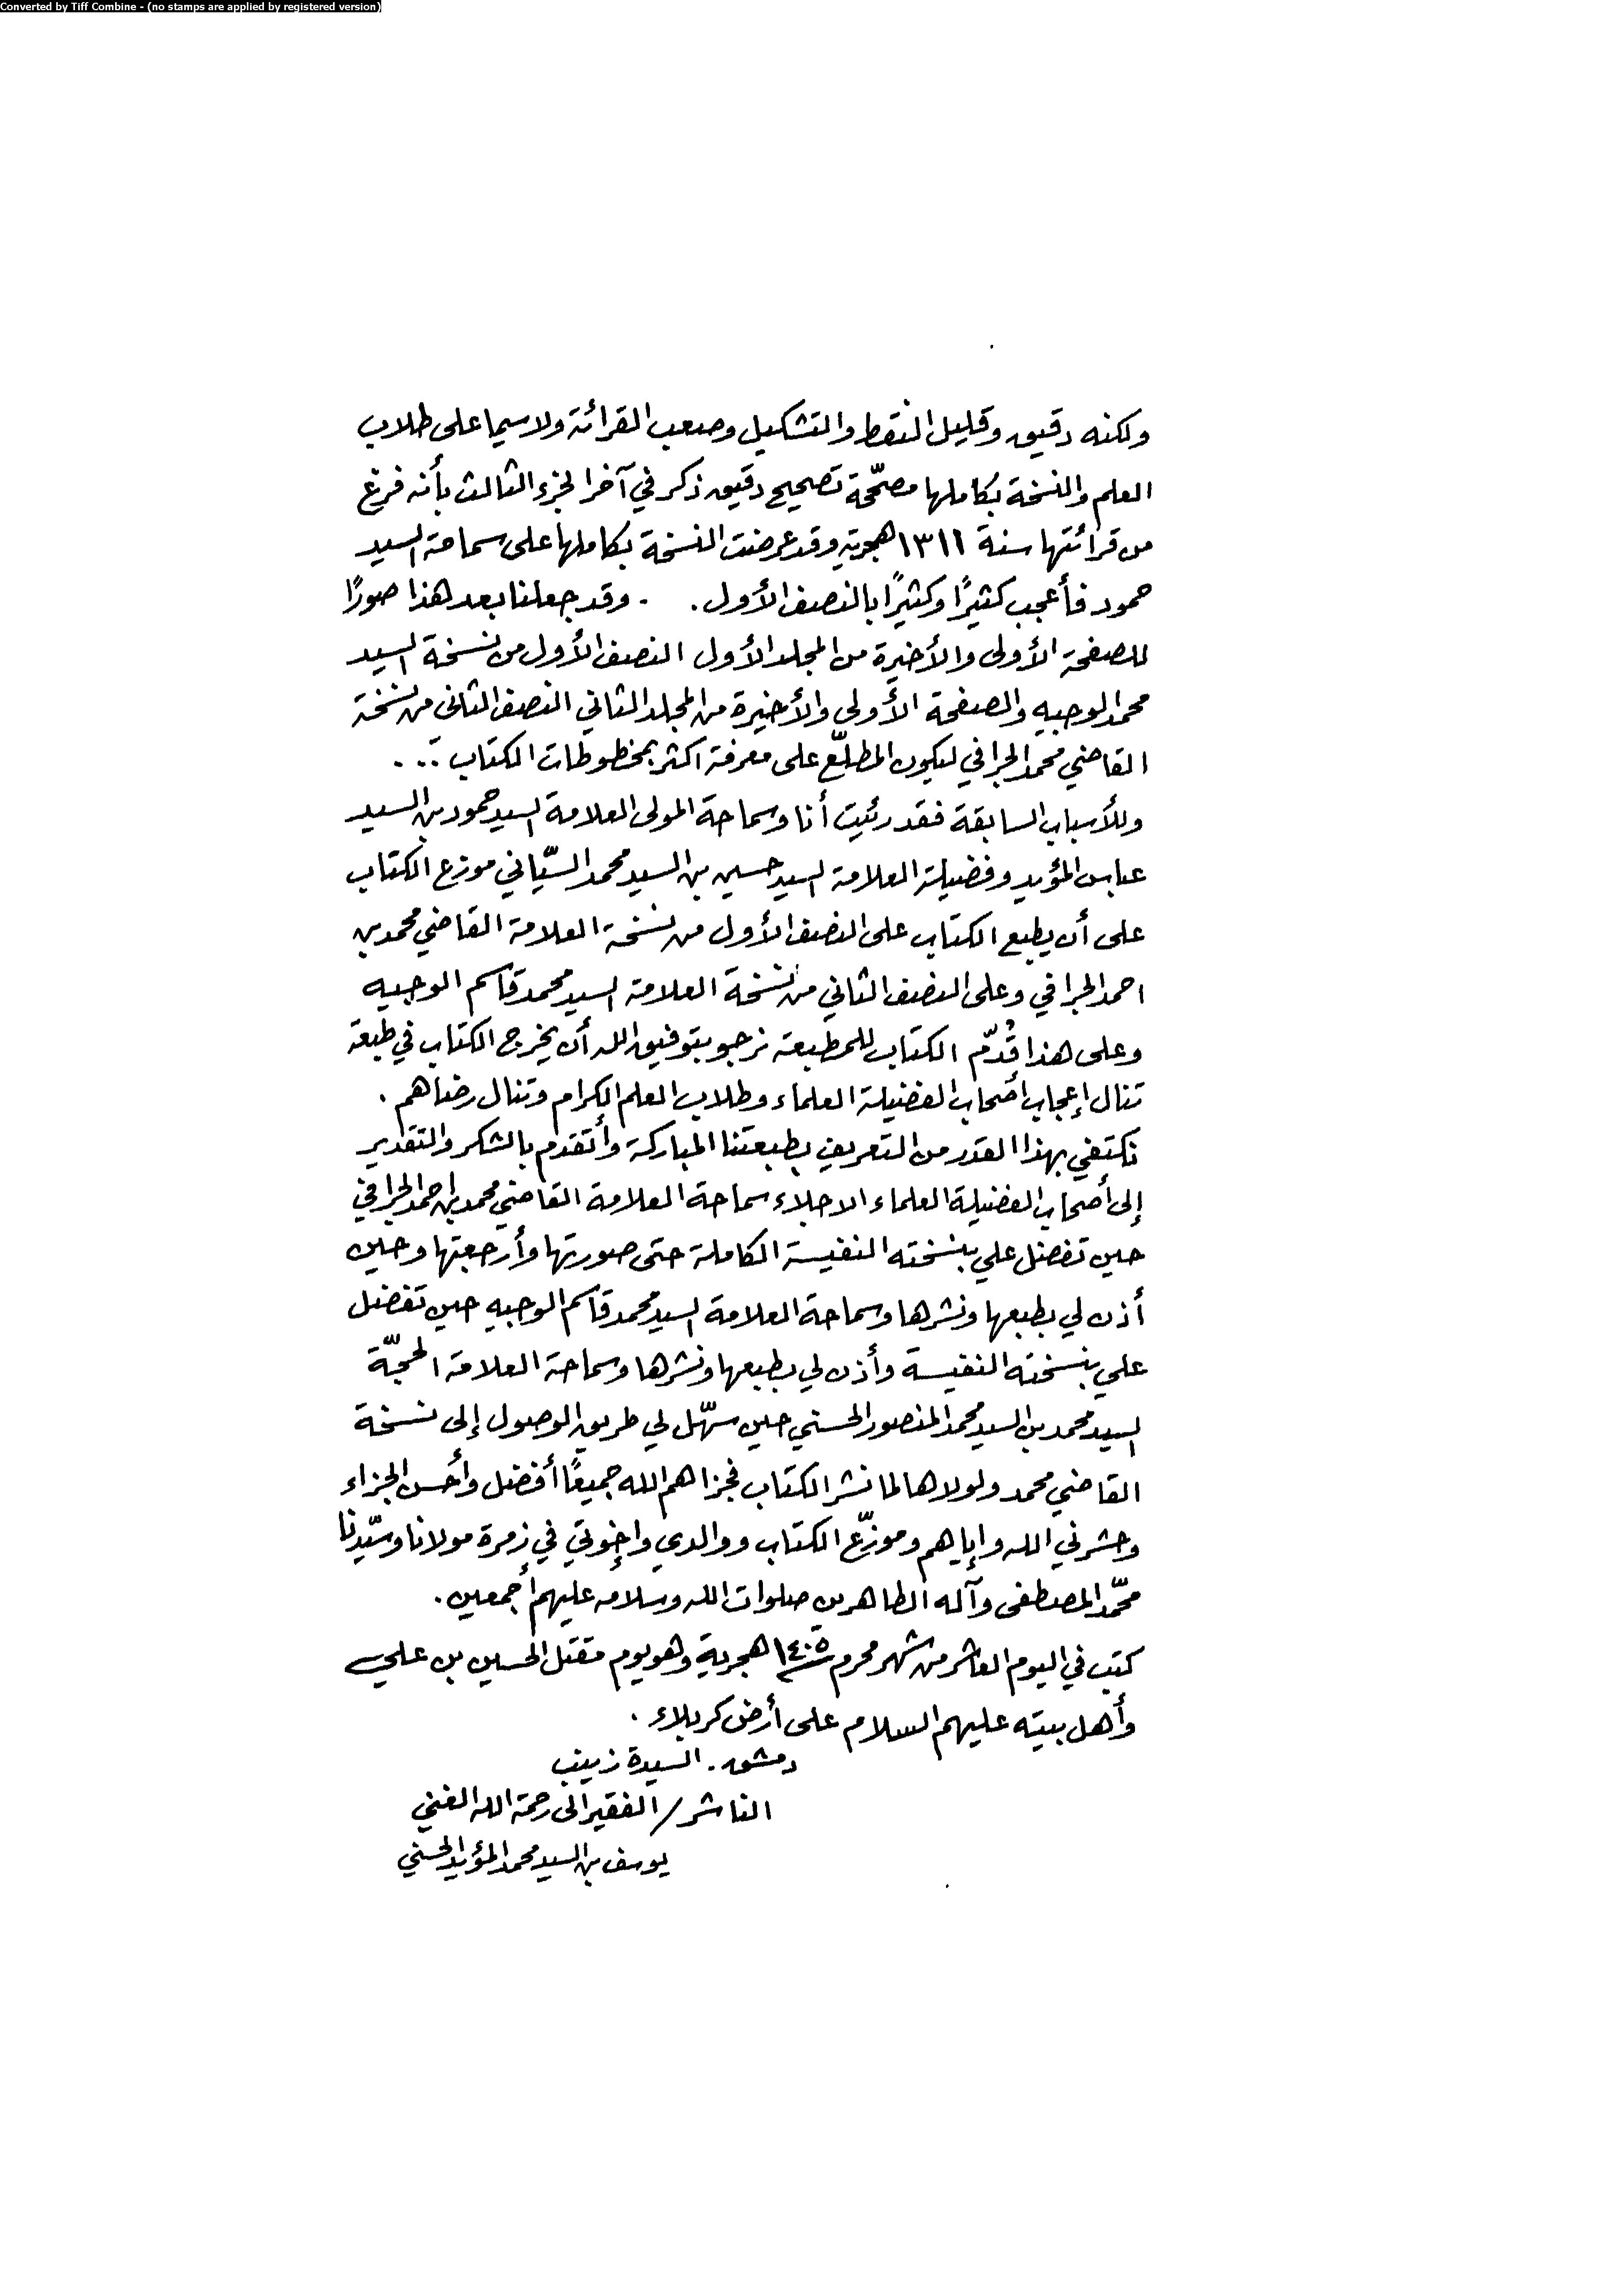 Converted by Tiff Combine - (no stamps are applied by registered version)
ولكنه دقيق وقليل النقط والتشكيل وصعب القرائة ولا سيما على طلاب
العلم والنسخة بكاملها مصحّحة تصحيح دقيق ذكر في آخر الجزء الثالث بأنه فرغ
من قرائتها سنة ١٣١١ هجرية وقد عرضت النسخة بكاملها على سماحة السيد
حمود فأعجب كثيرًا وكثيرًا بالنصف الأول. . وقد جعلنا بعد هذا صورًا
للصفحة الأولى والأخيرة من المجلد الأول النصف الأول من نسخة السيد
محمد الوجيه والصفحة الأولى والأخيرة من المجلد الثاني النصف الثاني من نسخة
القاضي محمد الجرافي ليكون المطلّع على معرفة اكثر بمخطوطات الكتاب ...
وللأسباب السابقة فقد رئيت أنا وسماحة المولى العلامة السيد حمود بن السيد
عباس المؤيد وفضيلة العلامة السيد حسين بن السيد محمد السيّاني موزع الكتاب
على أن يطبع الكتاب على النصف الأول من نسخة العلامة القاضي محمد بن
احمد الجرافي وعلى النصف الثاني من نسخة العلامة السيد محمد قاسم الوجيه
وعلى هذا قُدّم الكتاب للمطبعة نرجو بتوفيق الله أن يخرج الكتاب في طبعة
تنال إعجاب اصحاب الفضيلة العلماء وطلاب العلم الكرام وتنال رضاهم .
نكتفي بهذا القدر من التعريف بطبعتنا المباركة وأتقدم بالشكر والتقدير
إلى أصحاب الفضيلة العلماء الاجلاء سماحة العلامة القاضي محمد بن احمد الجرافي
حين تفضل علي بنسخته النفيسة الكاملة حتى صورتها وأرجعتها وحين
أذن لي بطبعها ونشرها وسماحة العلامة السيد محمد قاسم الوجيه حين تفضل
علي بنسخته النفيسة وأذن لي بطبعها ونشرها وسماحة العلامة الحجّة
السيد محمد بن السيد محمد المنصور الحسني حين سهّل لي طريق الوصول إلى نسخة
القاضي محمد ولولاها لما نشر الكتاب فجزاهم الله جميعًا أفضل وأحسن الجزاء
وحشرني الله وإياهم وموزّع الكتاب ووالدي وإخوتي في زمرة مولانا وسيّدنا
محمّد المصطفى وآله الطاهرين صلوات الله وسلامه عليهم أجمعين .
كتب في اليوم العاشر من شهر محرم ١٤٠٥ هجرية وهو يوم مقتل الحسين بن علي
وأهل بيته عليهم السلام على أرض كربلاء .
دمشق . السيدة زينب
الناشر / الفقير الى رحمة الله الغني
يوسف بن السيد محمد المؤيد الحسني